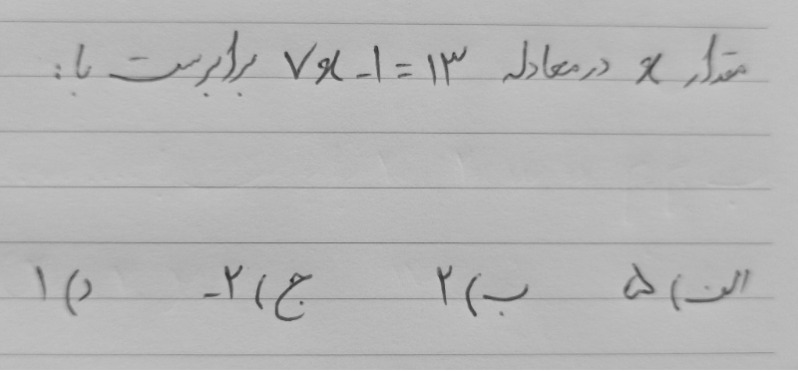 مقدار x در معادله ۷x - ۱ = ۱۳ برابرست با:
الف) ۵ ب) ۲ ج) ۲- د) ۱